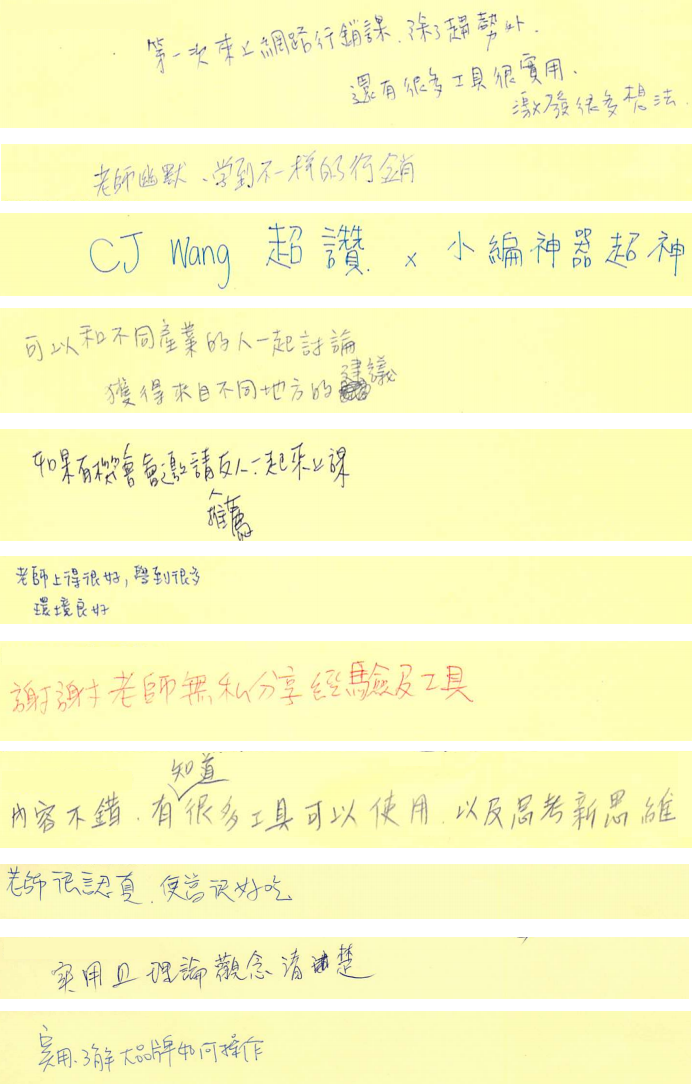 第一次來上網路行銷課、除了趨勢外、
還有很多工具很實用、
激發很多想法.
老師幽默、学到不一样的行銷
CJ Wang 超讚. x 小編神器超神
可以和不同產業的人一起討論
獲得來自不同地方的建議
如果有機會會邀請友人一起來上課
推薦
老師上得很好,學到很多
環境良好
謝謝老師無私分享經驗及工具
知道
內容不錯、有很多工具可以使用、以及思考新思維
老師很認真、便當很好吃
實用且理論觀念清楚
實用、了解大品牌如何操作